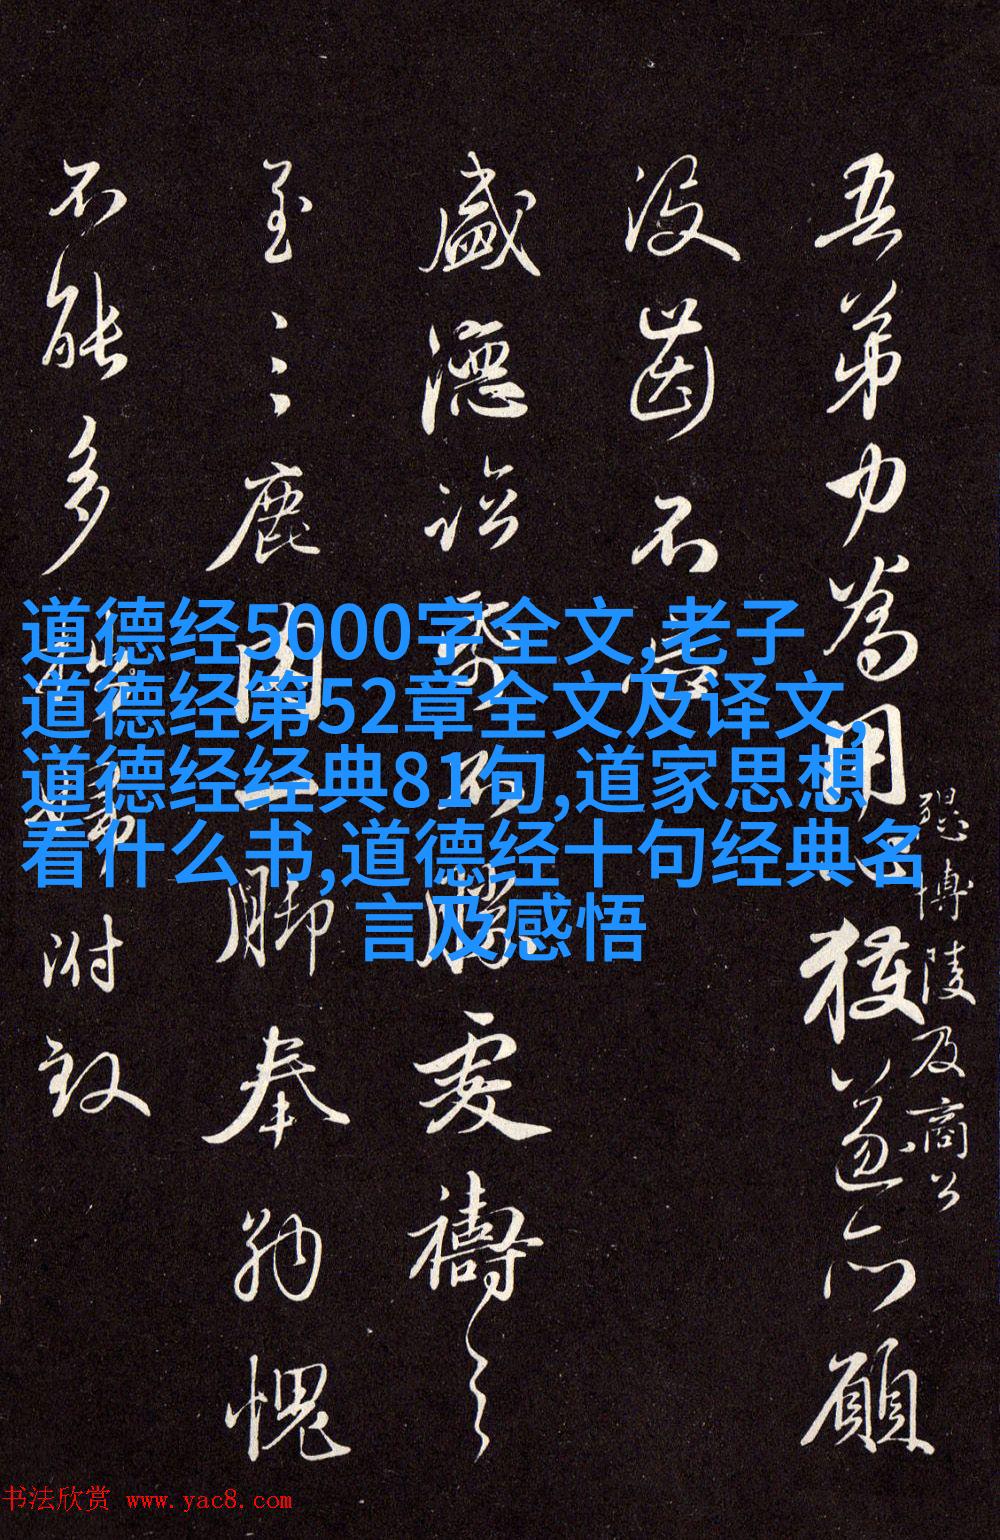 吾弟力為用心獲遂心願
聽博陵及商公
沒齒不忘
盛德諮
不勝
處禱之
至鹿肉一腳奉
愧
不能多
附
道德经5000字全文,老子
道德经第52章全文及译文,
道德经经典81句,道家思想
看什么书,道德经十句经典名
言及感悟
书法欣赏 www.yac8.com